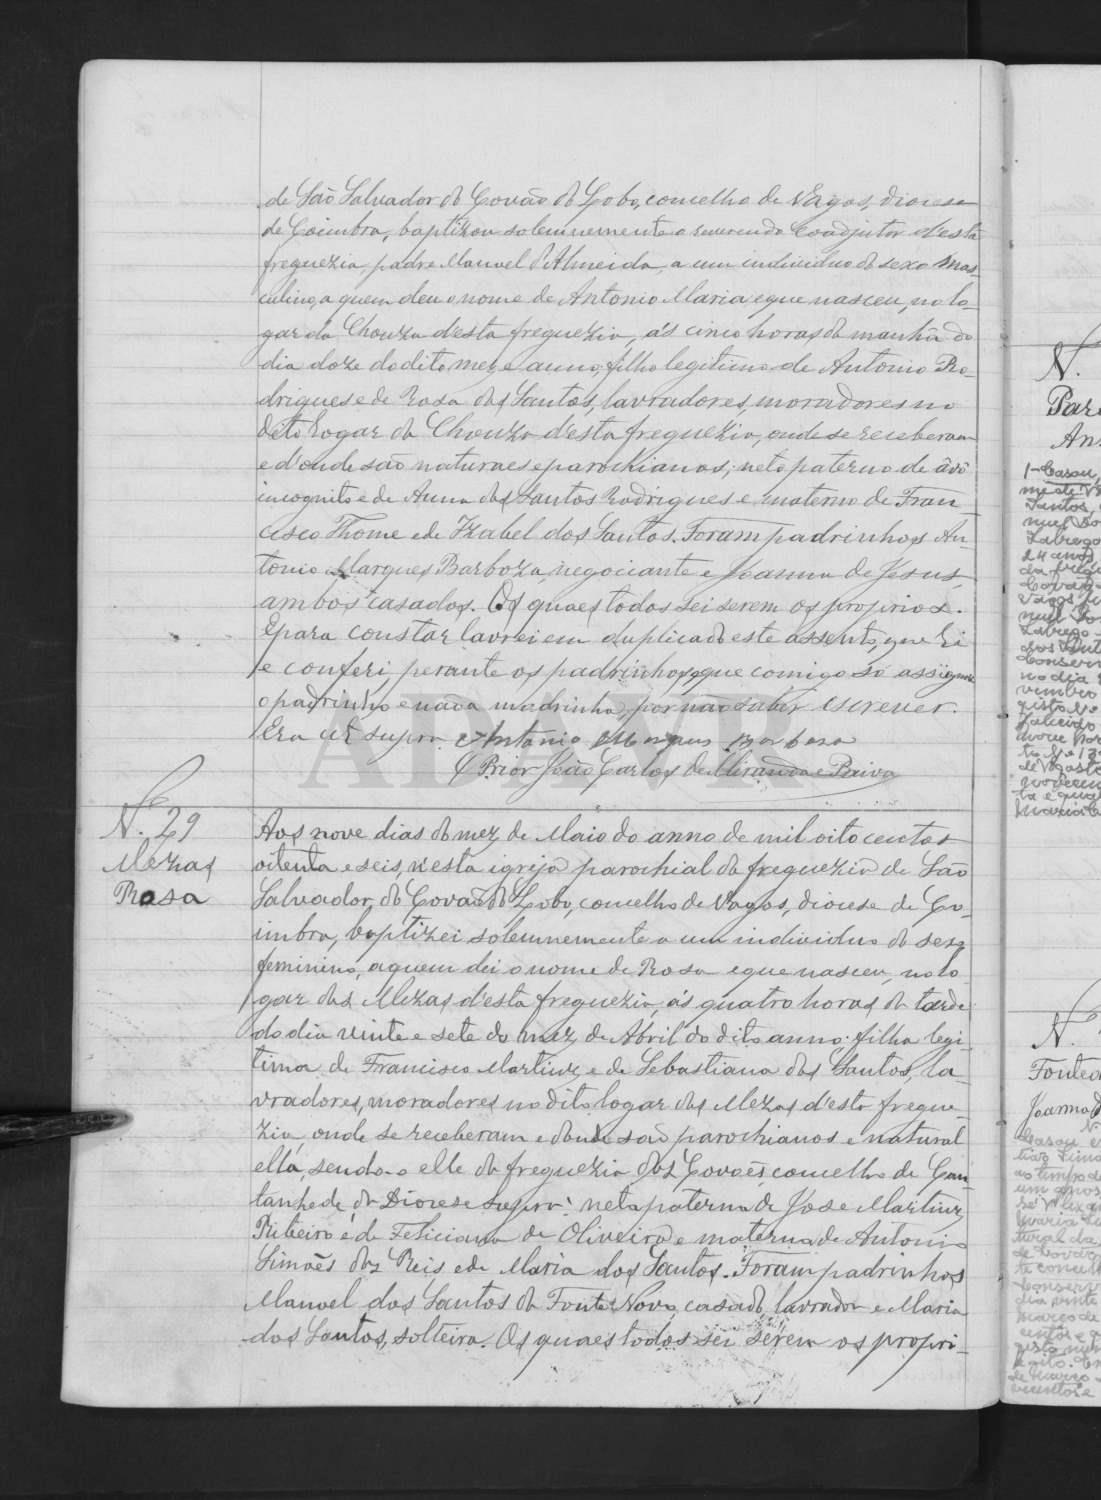 de São Salvador do Covão do Lobo, concelho de Vagos, diocese
de Coimbra, baptizou solemnemente o reverendo Coadjutor d'esta
freguezia, padre Manoel d'Almeida, a um individuo do sexo mas-
culino, a quem deu o nome de Antonio Maria, e que nasceu, no lo-
gar da Chouza d'esta freguezia, ás cinco horas da manhã do
dia doze do dito mez e anno, filho legitimo de Antonio Ro-
drigues e de Rosa dos Santos, lavradores, moradores no
dito logar da Chouza d'esta freguezia, onde se receberam
e d'onde são naturaes e parochianos; neto paterno de avô
incognito e de Anna dos Santos Rodrigues e materno de Fran-
cisco Thome e de Izabel dos Santos. Foram padrinhos An-
tonio Marques Barboza, negociante e Joanna de Jesus,
ambos casados. Os quaes todos sei serem os proprios.
E para constar lavrei em duplicado este assento, que li
e conferi perante os padrinhos, que comigo só assigna
o padrinho e não a madrinha, por não saber escrever.
Era ut supra. Antonio Marques Barbosa
O Prior João Carlos de Miranda e Paiva
ADAVR
N. 29
Mezas
Rosa
Aos nove dias do mez de Maio do anno de mil oitocentos
oitenta e seis, n'esta igreja parochial da freguezia de São
Salvador, do Covão do Lobo, concelho de Vagos, diocese de Co-
imbra, baptizei solemnemente a um individuo do sexo
feminino, a quem dei o nome de Rosa e que nasceu, no lo
gar das Mezas d'esta freguezia, ás quatro horas da tarde
do dia vinte e sete do mez de Abril do dito anno; filha legi-
tima de Francisco Martins e de Sebastiana dos Santos, la-
vradores, moradores no dito logar das Mezas d'esta fregue-
zia, onde se receberam e donde são parochianos e natural
ella, sendo-o elle da freguezia dos Covões, concelho de Can-
tanhede, da Diocese supra; neta paterna de Jose Martins
Ribeiro e de Feliciana de Oliveira e materna de Antonio
Simões dos Reis e de Maria dos Santos. Foram padrinhos
Manoel dos Santos da Fonte Nova, casado, lavrador e Maria
dos Santos, solteira. Os quaes todos sei serem os propri-
N.
1-Casou
Santos
24 annos
N.
Joanna